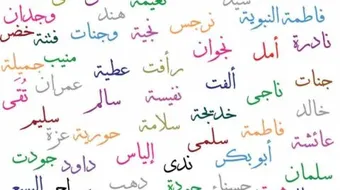 نعيمة
هند
وجدان
فاطمة النبوية نرجس نجية وجنات فتنة خضر
نادرة أمل نجوان رأفت عطية منيب جميلة
جنات ناجى ألفت نفيسة سالم عمران تُقَى
خالد خديجة سلامة سليم
عائشة فاطمة سلمى حورية عزة
أبو بكر ندى إلياس داود جودت
سلمان
السبع حسناء جودة دهب